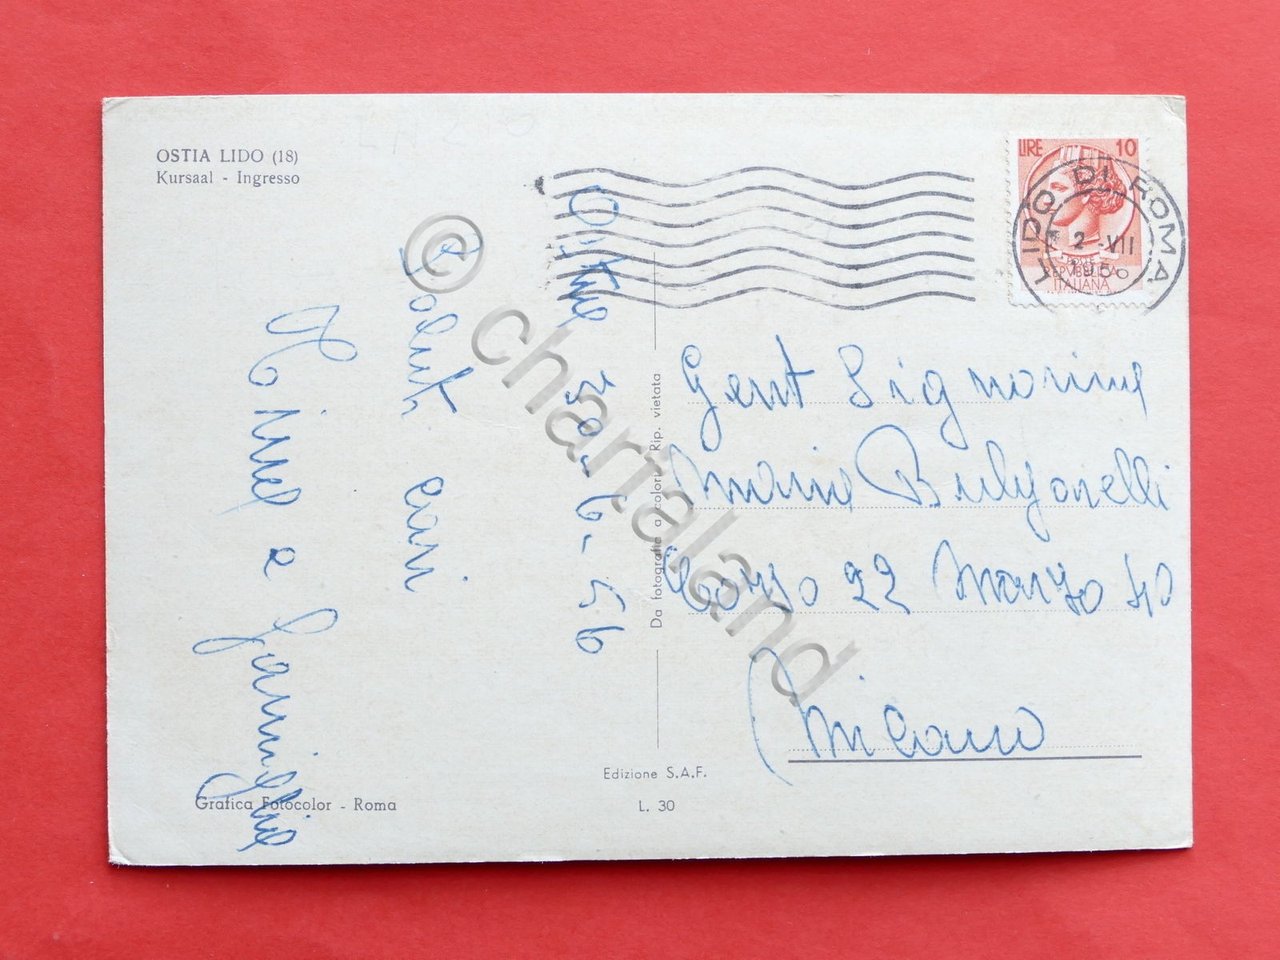 OSTIA LIDO (18)
Kursaal - Ingresso
LIRE 10
LIDO DI ROMA
2 -VII
1956
REPVBBLICA
ITALIANA
Ostia 30-6-56
Saluti cari
e famiglia
Da fotografie a colori Rip. vietata
Gent Signorina
Maria
Corso 22 Marzo 40
Milano
Edizione S.A.F.
Grafica Fotocolor - Roma
L. 30
© chartaland